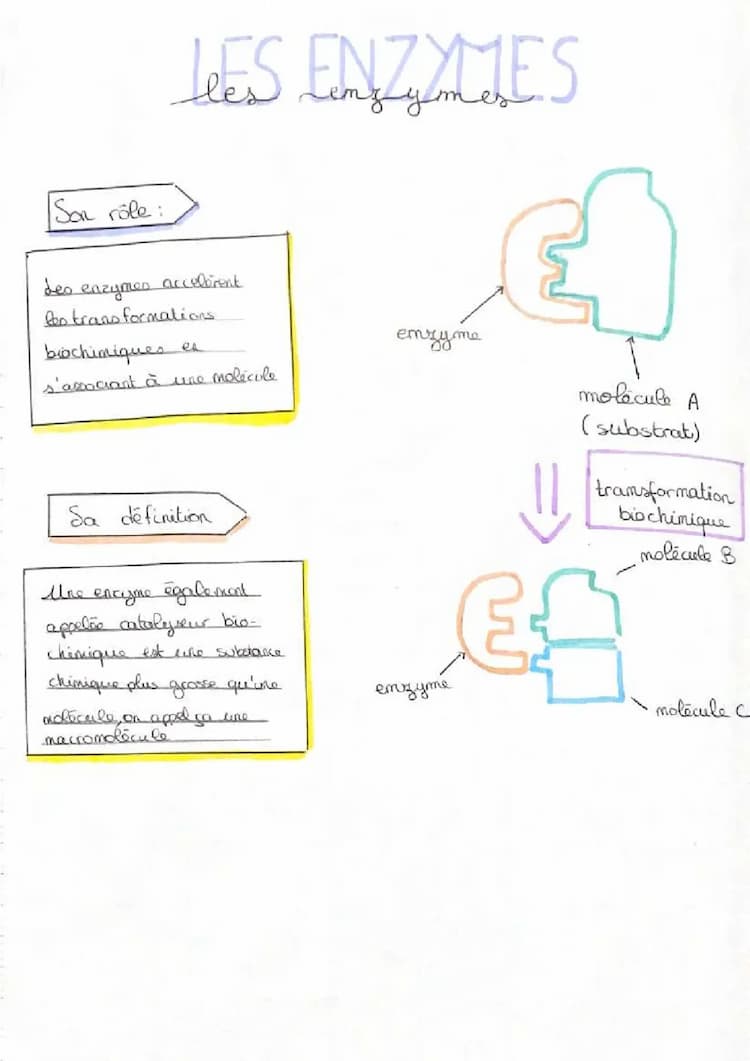 LES ENZYMES
les enzymes
Son rôle :
Les enzymes accélèrent
les transformations
biochimiques en
s'associant à une molécule
enzyme
molécule A
(substrat)
transformation
biochimique
Sa définition
Une enzyme également
appelée catalyseur bio-
chimique est une substance
chimique plus grosse qu'une
molécule, on appel ça une
macromolécule
molécule B
enzyme
molécule C